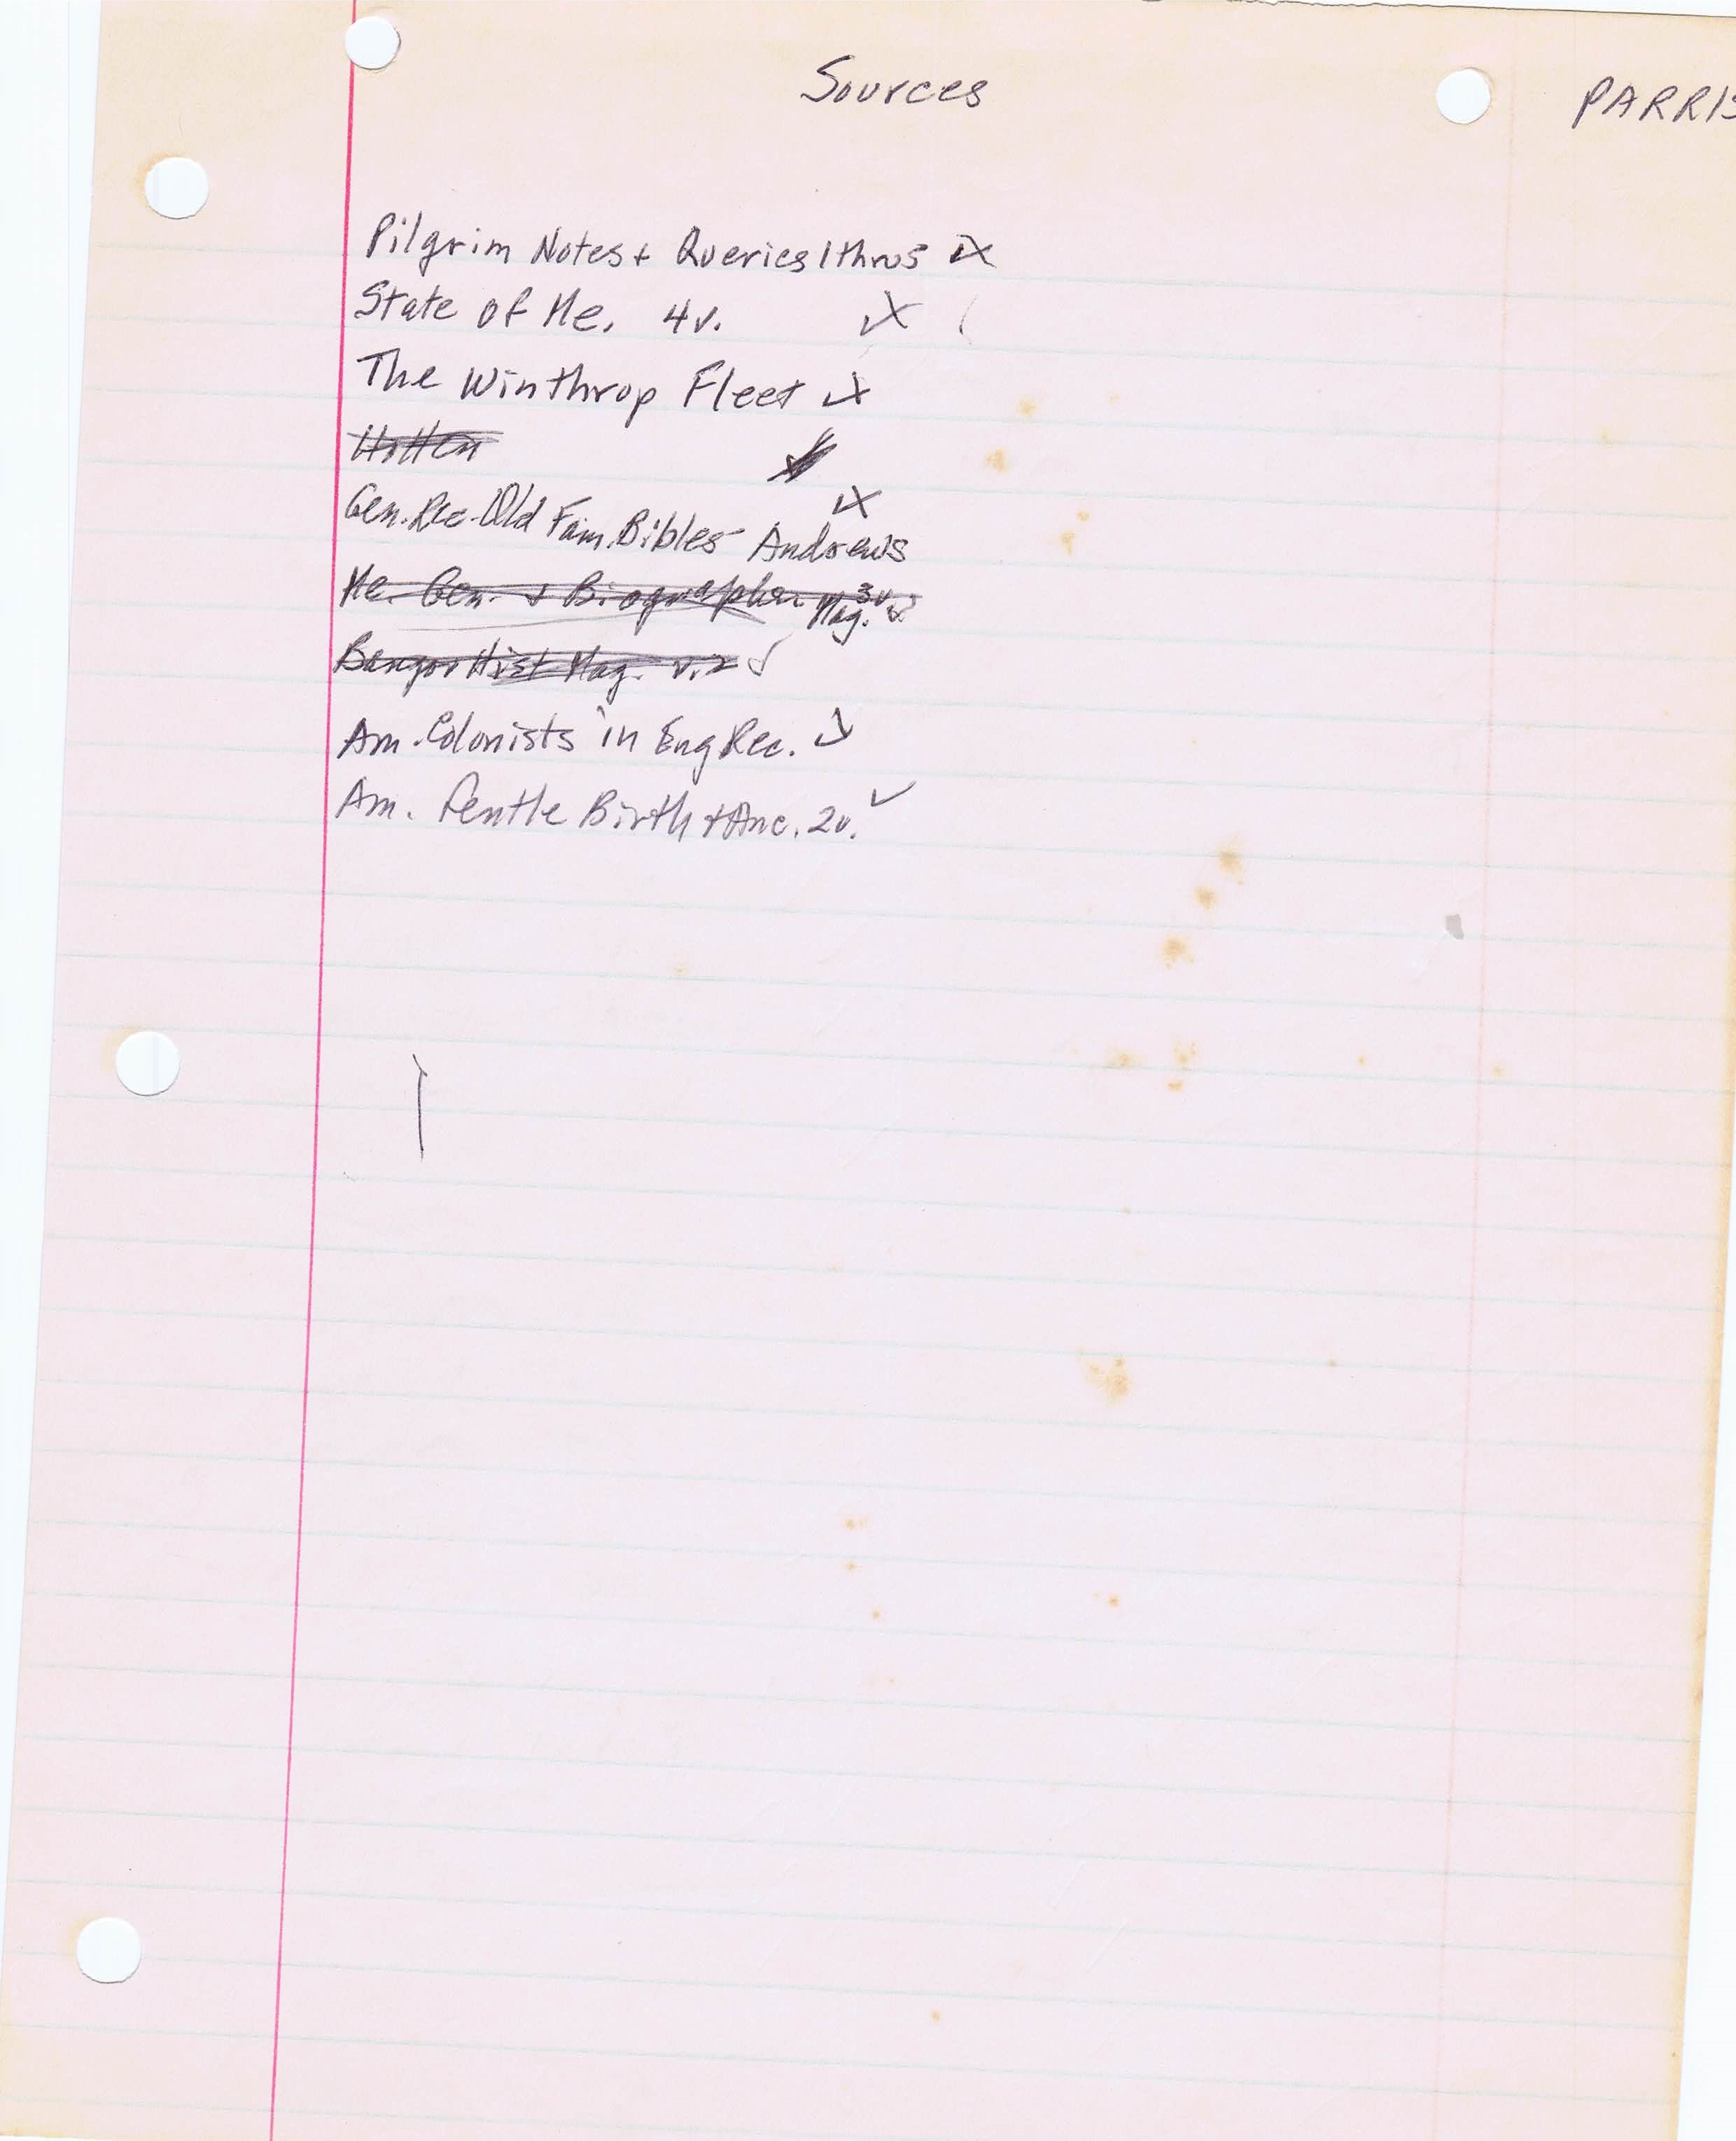 Sources
PARRIS
Pilgrim Notes + Queries 1 thru 5
State of Me. 4v.
The Winthrop Fleet
Hotten
Gen. Rec. Old Fam. Bibles Andrews
Me. Gen. + Biographer Mag. 3v.
Bangor Hist Mag. v.2
Am. Colonists in Eng Rec.
Am. Gentle Birth + Anc. 2v.